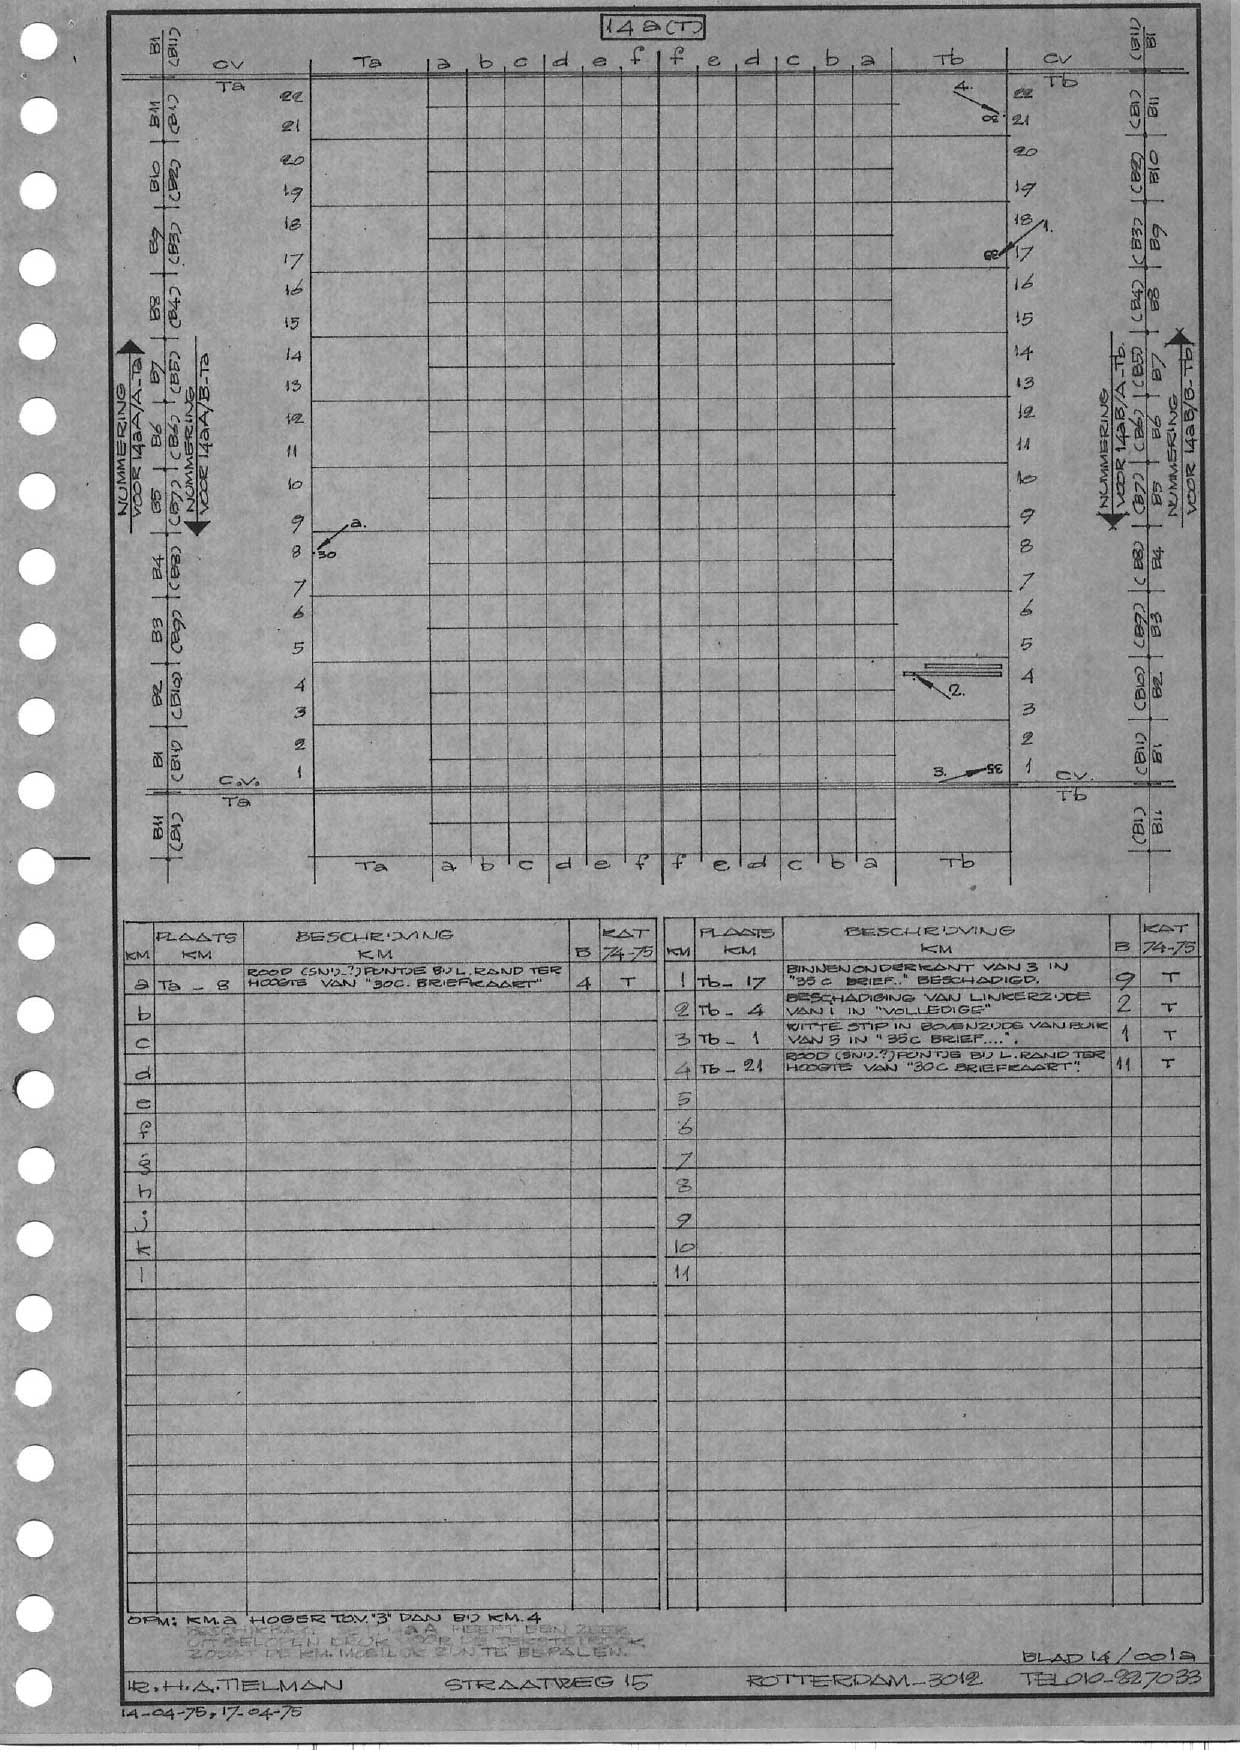 14a(T)
CV Ta a b c d e f f e d c b a Tb CV
Ta Tb
22 22
21 21
20 20
19 19
18 18
17 17
16 16
15 15
14 14
13 13
12 12
11 11
10 10
9 9
8 8
7 7
6 6
5 5
4 4
3 3
2 2
1 1
4.
30
1.
35
a.
30
2.
3. 35
C.V. CV.
Ta Tb
Ta a b c d e f f e d c b a Tb
B1 B11 B10 B9 B8 B7 B6 B5 B4 B3 B2 B1 B11
(B11) (B1) (B2) (B3) (B4) (B5) (B6) (B7) (B8) (B9) (B10) (B11) (B1)
NUMMERING
VOOR 14aA/A-Ta
NUMMERING
VOOR 14aA/B-Ta
(B11) (B1) (B2) (B3) (B4) (B5) (B6) (B7) (B8) (B9) (B10) (B11) (B1)
B1 B11 B10 B9 B8 B7 B6 B5 B4 B3 B2. B1 B11
NUMMERING
VOOR 14aB/A-Tb.
NUMMERING
VOOR 14aB/B-Tb
KM PLAATS KM BESCHRIJVING KM B KAT 74-75
a Ta - 8 ROOD (SNIJ-?) PUNTJE BIJ L. RAND TER
HOOGTE VAN "30C. BRIEFKAART" 4 T
b
c
d
e
f
g
h
j
k
l
KM PLAATS KM BESCHRIJVING KM B KAT 74-75
1 Tb - 17 BINNENONDERKANT VAN 3 IN
"35 C BRIEF.." BESCHADIGD. 9 T
2 Tb - 4 BESCHADIGING VAN LINKERZIJDE
VAN I IN "VOLLEDIGE" 2 T
3 Tb - 1 WITTE STIP IN BOVENZIJDE VAN BUIK
VAN 5 IN "35C BRIEF....". 1 T
4 Tb - 21 ROOD (SNIJ.?) PUNTJE BIJ L. RAND TER
HOOGTE VAN "30C BRIEFKAART". 11 T
5
6
7
8
9
10
11
OPM: KM.a HOGER TOV. "3" DAN BIJ KM. 4
HEEFT EEN ZEER
ZODAT DE KM. MOEILIJK ZIJN TE BEPALEN.
BLAD 14/001a
IR. H.A. TIELMAN STRAATWEG 15 ROTTERDAM-3012 TEL 010-227033
14-04-75, 17-04-75